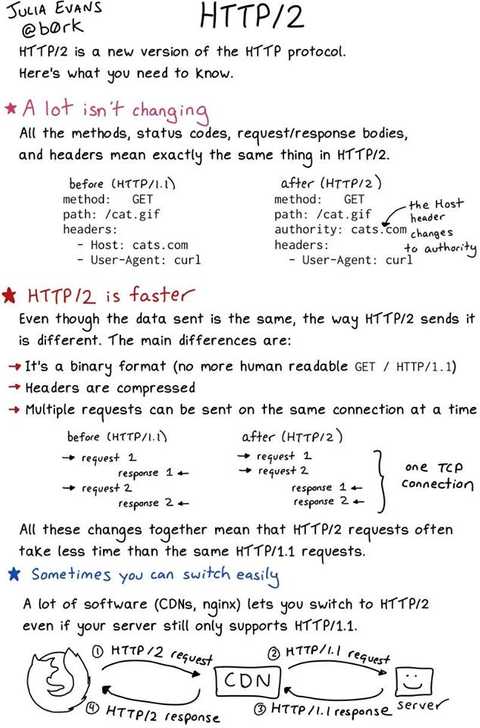 JULIA EVANS
@b0rk
HTTP/2
HTTP/2 is a new version of the HTTP protocol.
Here's what you need to know.
★ A lot isn't changing
All the methods, status codes, request/response bodies,
and headers mean exactly the same thing in HTTP/2.
before (HTTP/1.1)
method: GET
path: /cat.gif
headers:
- Host: cats.com
- User-Agent: curl
after (HTTP/2)
method: GET
path: /cat.gif
authority: cats.com
headers:
- User-Agent: curl
the Host
header
changes
to authority
★ HTTP/2 is faster
Even though the data sent is the same, the way HTTP/2 sends it
is different. The main differences are:
→ It's a binary format (no more human readable GET / HTTP/1.1)
→ Headers are compressed
→ Multiple requests can be sent on the same connection at a time
before (HTTP/1.1)
→ request 1
response 1 ←
→ request 2
response 2 ←
after (HTTP/2)
→ request 1
→ request 2
response 1 ←
response 2 ←
one TCP
connection
All these changes together mean that HTTP/2 requests often
take less time than the same HTTP/1.1 requests.
★ Sometimes you can switch easily
A lot of software (CDNs, nginx) lets you switch to HTTP/2
even if your server still only supports HTTP/1.1.
① HTTP/2 request
② HTTP/1.1 request
CDN
④ HTTP/2 response
③ HTTP/1.1 response
server